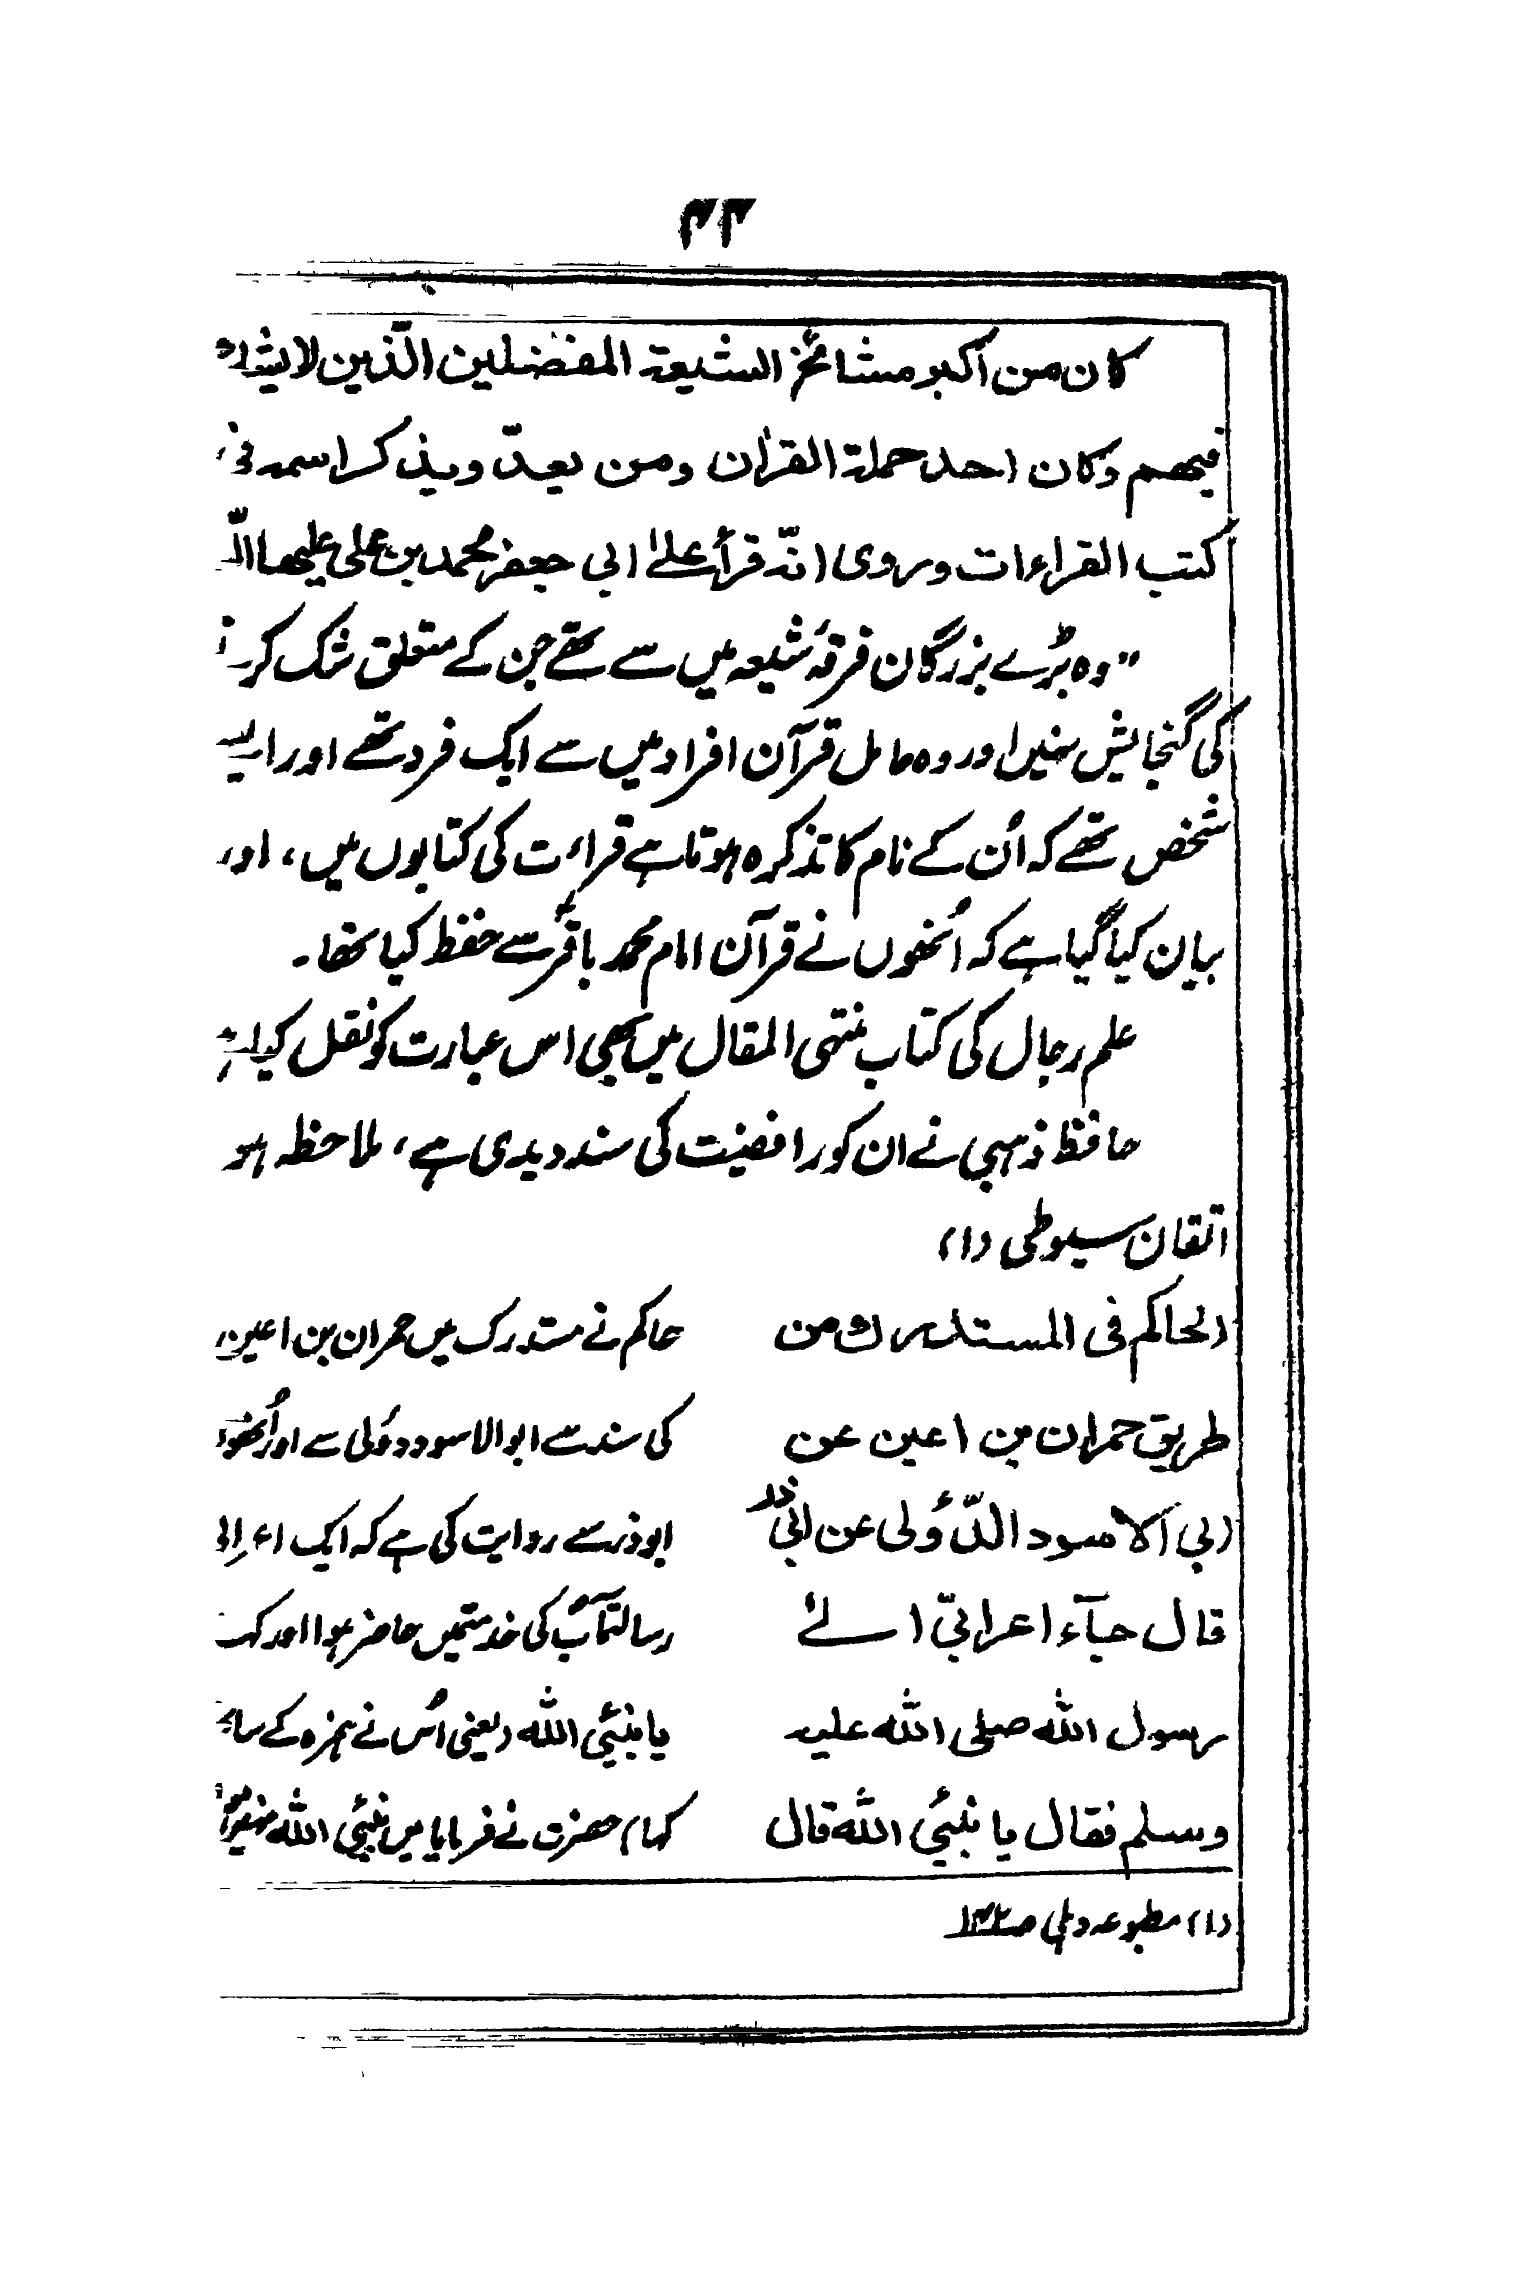 ۴۲
کان من اکبر مشائخ الشیعۃ المفضلین الّذین لا یشک
فیھم وکان احد حملۃ القراٰن ومن یعدّ ویذکر اسمہ فی
کتب القراءات وروی انّہ قرأ علیٰ ابی جعفر محمد بن علی علیھا
”وہ بڑے بزرگان فرقۂ شیعہ میں سے تھے جن کے متعلق شک کر
کی گنجایش نہیں اور وہ حامل قرآن افراد میں سے ایک فرد تھے اور ایسے
شخص تھے کہ اُن کے نام کا تذکرہ ہوتا ہے قراءت کی کتابوں میں، اور
بیان کیا گیا ہے کہ اُنھوں نے قرآن امام محمد باقرؑ سے حفظ کیا تھا۔
علم رجال کی کتاب منتہی المقال میں بھی اس عبارت کو نقل کیا ہے
حافظ ذہبی نے ان کو رافضیت کی سند دیدی ہے، ملاحظہ ہو
اتقان سیوطی (۱)
الحاکم فی المستدرک من
طریق حمران بن اعین عن
ابی الاسود الدّؤلی عن ابی ذر
قال جآء اعرابیّ الیٰ
رسول اللہ صلی اللہ علیہ
وسلم فقال یا نبیٔ اللہ قال
حاکم نے مستدرک میں حمران بن اعین
کی سند سے ابوالاسود دؤلی سے اور اُنھوں
ابوذر سے روایت کی ہے کہ ایک اعرابی
رسالتمآبؐ کی خدمتمیں حاضر ہوا اور کہا
یا نبیٔ اللہ (یعنی اُس نے ہمزہ کے ساتھ
کہا) حضرت نے فرمایا میں نبیٔ اللہ نہیں
(۱) مطبوعہ دہلی